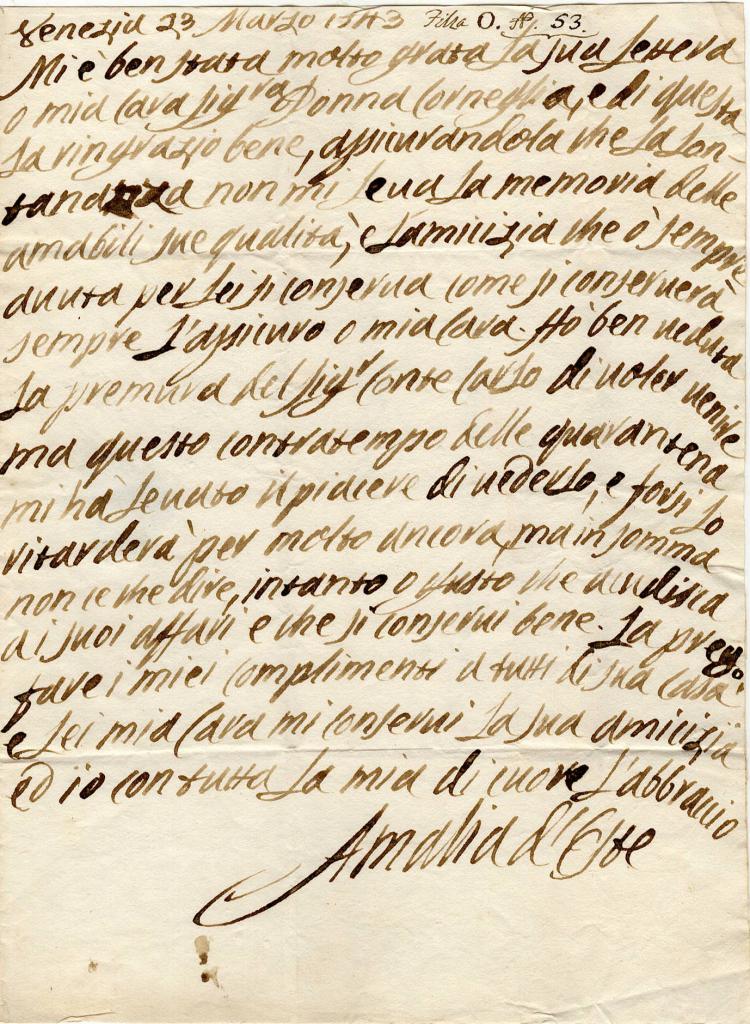 Venezia 23 Marzo 1743 Filza O. N. 53.
Mi è ben stata molto grata la sua lettera
o mia Cara sig.ra Donna Corneglia, e di questa
la ringrazio bene, assicurandola che la lon-
tananza non mi leua la memoria delle
amabili sue qualità, e l'amicizia che ò sempre
auuta per lei si conserua come si conseruerà
sempre l'assicuro o mia Cara. Hò ben ueduta
la premura del sig.r Conte Carlo di uoler uenire
ma questo contratempo delle quarantena
mi hà leuato il piacere di uederlo, e forsi lo
ritarderà per molto ancora, ma in somma
non ce che dire, intanto o gusto che acudisca
ai suoi affari e che si conserui bene. La prego
fare i miei complimenti a tutti di sua casa
e lei mia Cara mi conserui la sua amicizia
ed io con tutta la mia di cuore l'abbraccio
Amalia d'Este